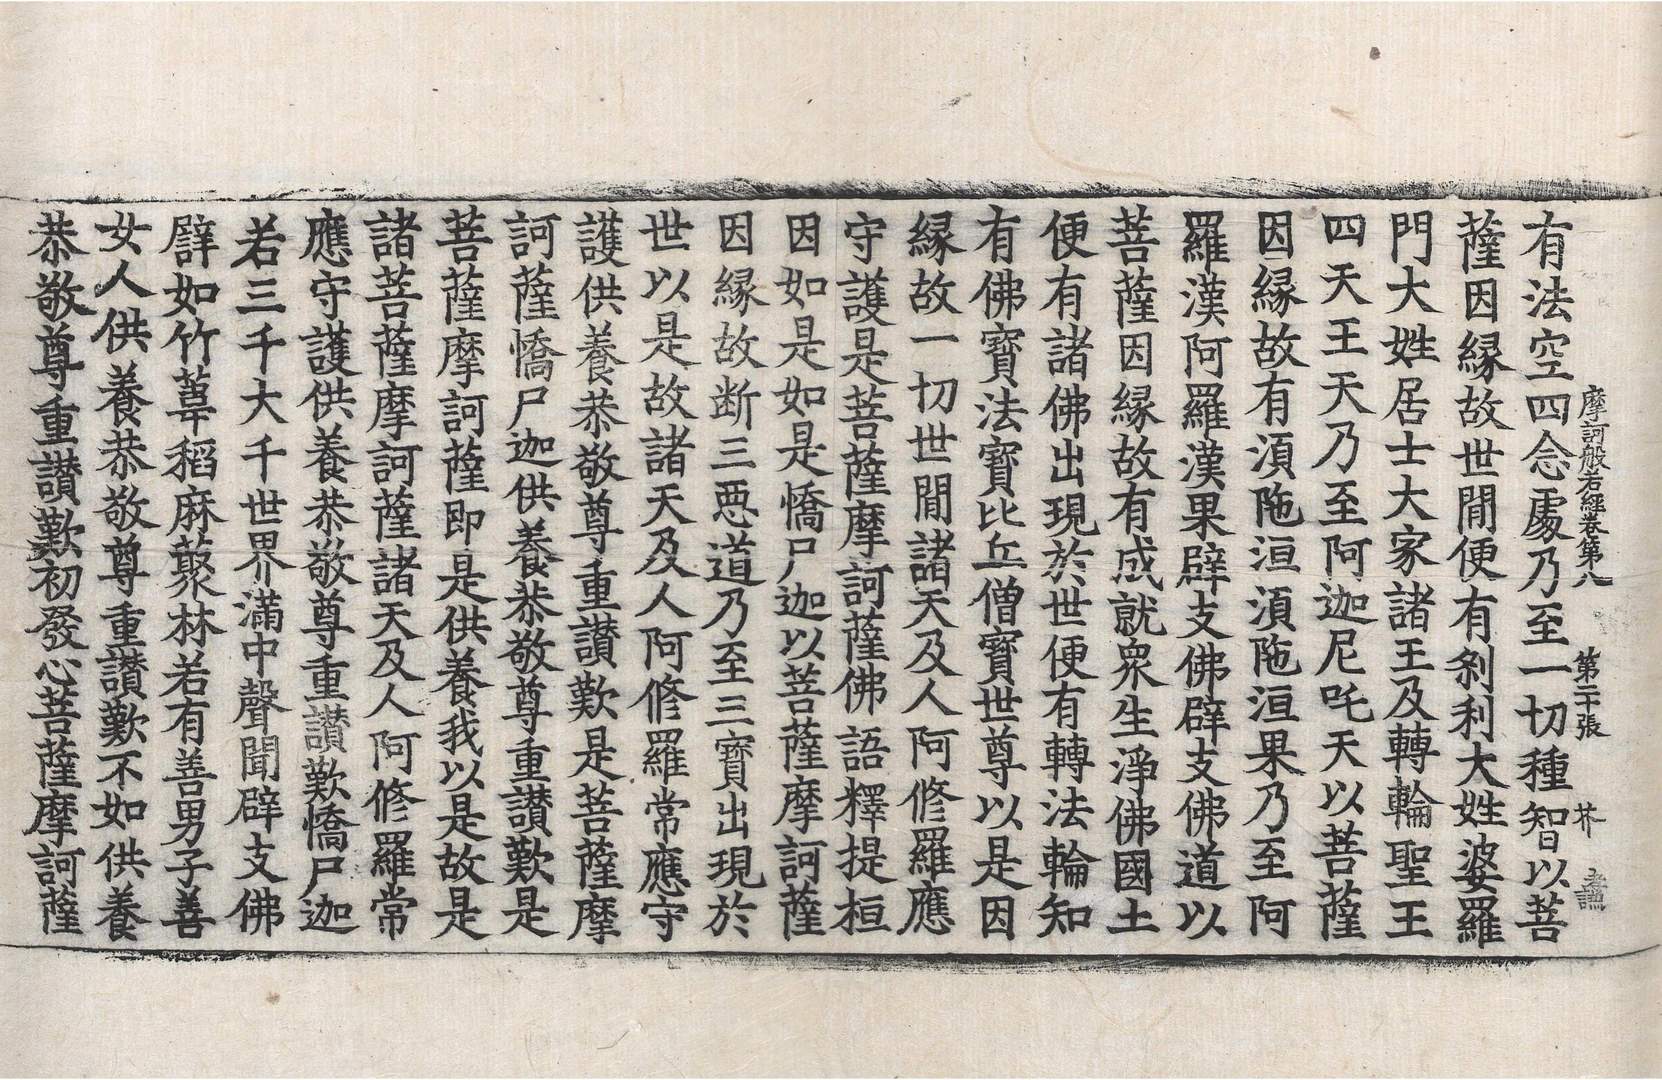 摩訶般若經卷第八　第二十張　芥
有法空四念處乃至一切種智以菩
薩因緣故世間便有刹利大姓婆羅
門大姓居士大家諸王及轉輪聖王
四天王天乃至阿迦尼吒天以菩薩
因緣故有湏陁洹湏陁洹果乃至阿
羅漢阿羅漢果辟支佛辟支佛道以
菩薩因緣故有成就衆生淨佛國土
便有諸佛出現於世便有轉法輪知
有佛寶法寶比丘僧寶世尊以是因
緣故一切世間諸天及人阿修羅應
守護是菩薩摩訶薩佛語釋提桓
因如是如是憍尸迦以菩薩摩訶薩
因緣故断三惡道乃至三寶出現於
世以是故諸天及人阿修羅常應守
護供養恭敬尊重讃歎是菩薩摩
訶薩憍尸迦供養恭敬尊重讃歎是
菩薩摩訶薩即是供養我以是故是
諸菩薩摩訶薩諸天及人阿修羅常
應守護供養恭敬尊重讃歎憍尸迦
若三千大千世界滿中聲聞辟支佛
譬如竹葦稻麻藂林若有善男子善
女人供養恭敬尊重讃歎不如供養
恭敬尊重讃歎初發心菩薩摩訶薩